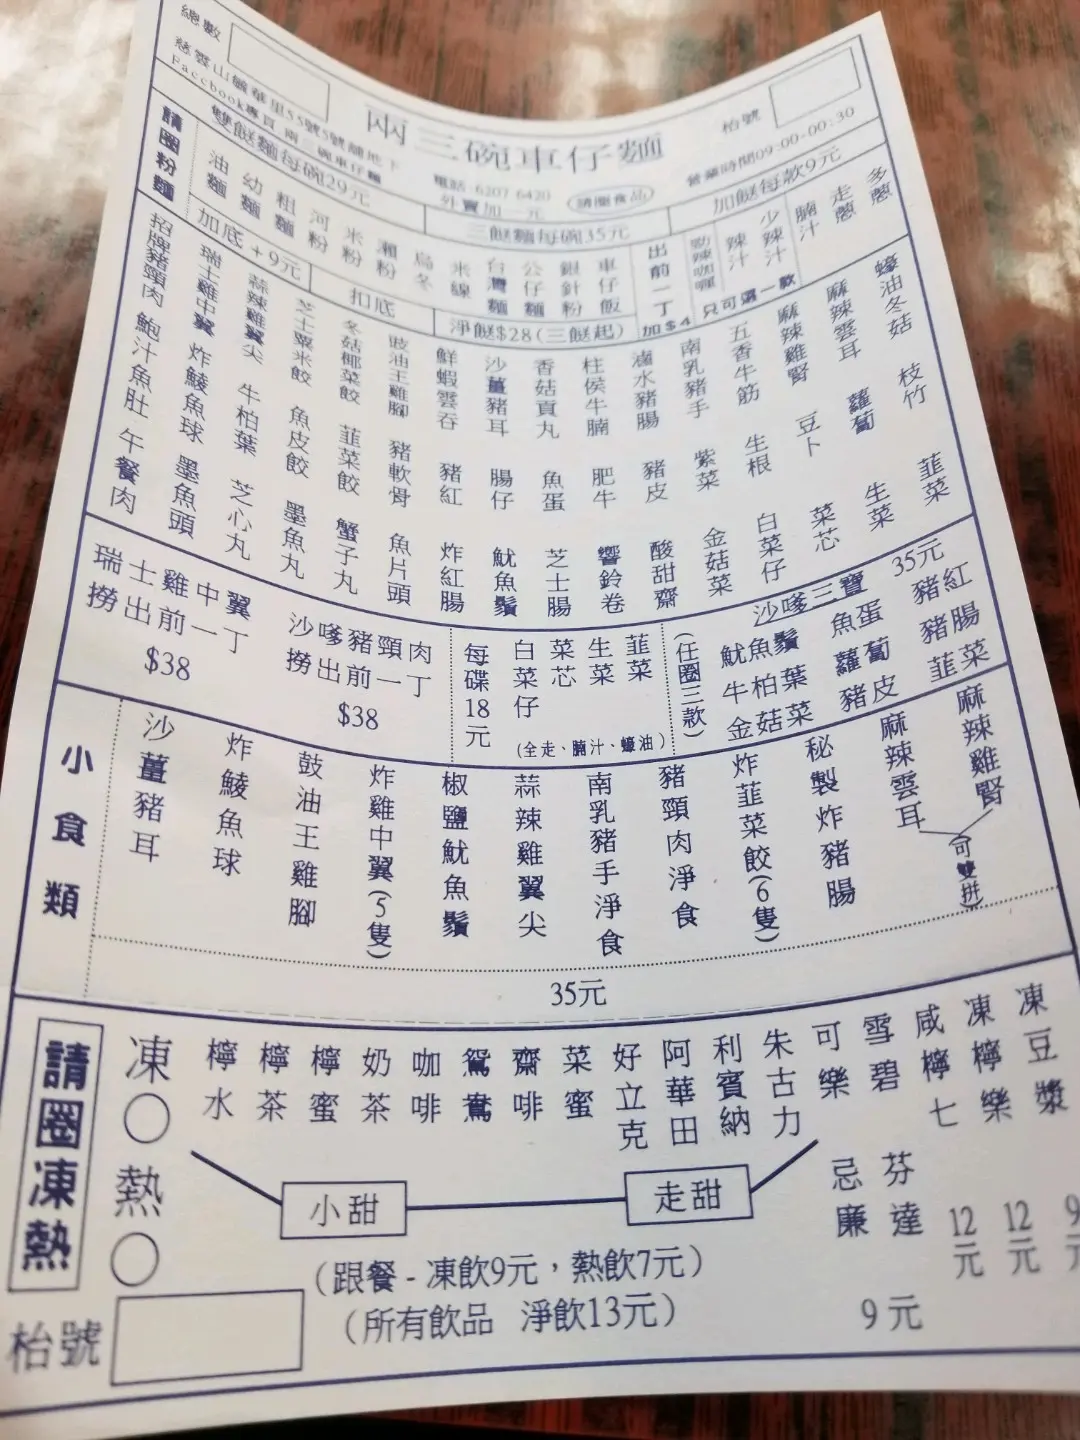 總數
兩三碗車仔麵
枱號
慈雲山毓華里55號5號舖地下
Facebook專頁 兩三碗車仔麵
電話:6207 6420
外賣加 元
請圈食品
營業時間09:00-00:30
雙餸麵每碗29元
三餸麵每碗35元
加餸每款9元
請圈粉麵
油麵 幼麵 粗麵 河粉 米粉 瀨粉 烏冬 米線 台灣麵 公仔麵 銀針粉 車仔飯
出前一丁 加$4
勁辣咖喱 辣汁 少辣汁 腩汁 走蔥 多蔥
只可選一款
加底+9元
扣底
淨餸$28(三餸起)
招牌豬頸肉 瑞士雞中翼 蒜辣雞翼尖 芝士粟米餃 冬菇椰菜餃 豉油王雞腳 鮮蝦雲吞 沙薑豬耳 香菇貢丸 柱侯牛腩 滷水豬腸 南乳豬手 五香牛筋 麻辣雞腎 麻辣雲耳 蠔油冬菇
鮑汁魚肚 炸鯪魚球 牛柏葉 魚皮餃 韮菜餃 豬軟骨 豬紅 腸仔 魚蛋 肥牛 豬皮 紫菜 生根 豆卜 蘿蔔 枝竹
午餐肉 墨魚頭 芝心丸 墨魚丸 蟹子丸 魚片頭 炸紅腸 魷魚鬚 芝士腸 響鈴卷 酸甜齋 金菇菜 白菜仔 菜芯 生菜 韮菜
瑞士雞中翼
撈出前一丁
$38
沙嗲豬頸肉
撈出前一丁
$38
每碟18元
白菜仔 菜芯 生菜 韮菜
(全走、腩汁、蠔油)
(任圈三款)
沙嗲三寶 35元
魷魚鬚 魚蛋 豬紅
牛柏葉 蘿蔔 豬腸
金菇菜 豬皮 韮菜
小食類
沙薑豬耳
炸鯪魚球
鼓油王雞腳
炸雞中翼(5隻)
椒鹽魷魚鬚
蒜辣雞翼尖
南乳豬手淨食
豬頸肉淨食
炸韮菜餃(6隻)
秘製炸豬腸
麻辣雲耳
麻辣雞腎
(可雙拼)
35元
請圈凍熱
凍○
熱○
檸水 檸茶 檸蜜 奶茶 咖啡 鴛鴦 齋啡 菜蜜 好立克 阿華田 利賓納 朱古力
可樂 雪碧 咸檸七 凍檸樂 凍豆漿
忌廉 芬達
12元 12元 9元
小甜
走甜
(跟餐 - 凍飲9元，熱飲7元)
(所有飲品 淨飲13元)
9元
枱號